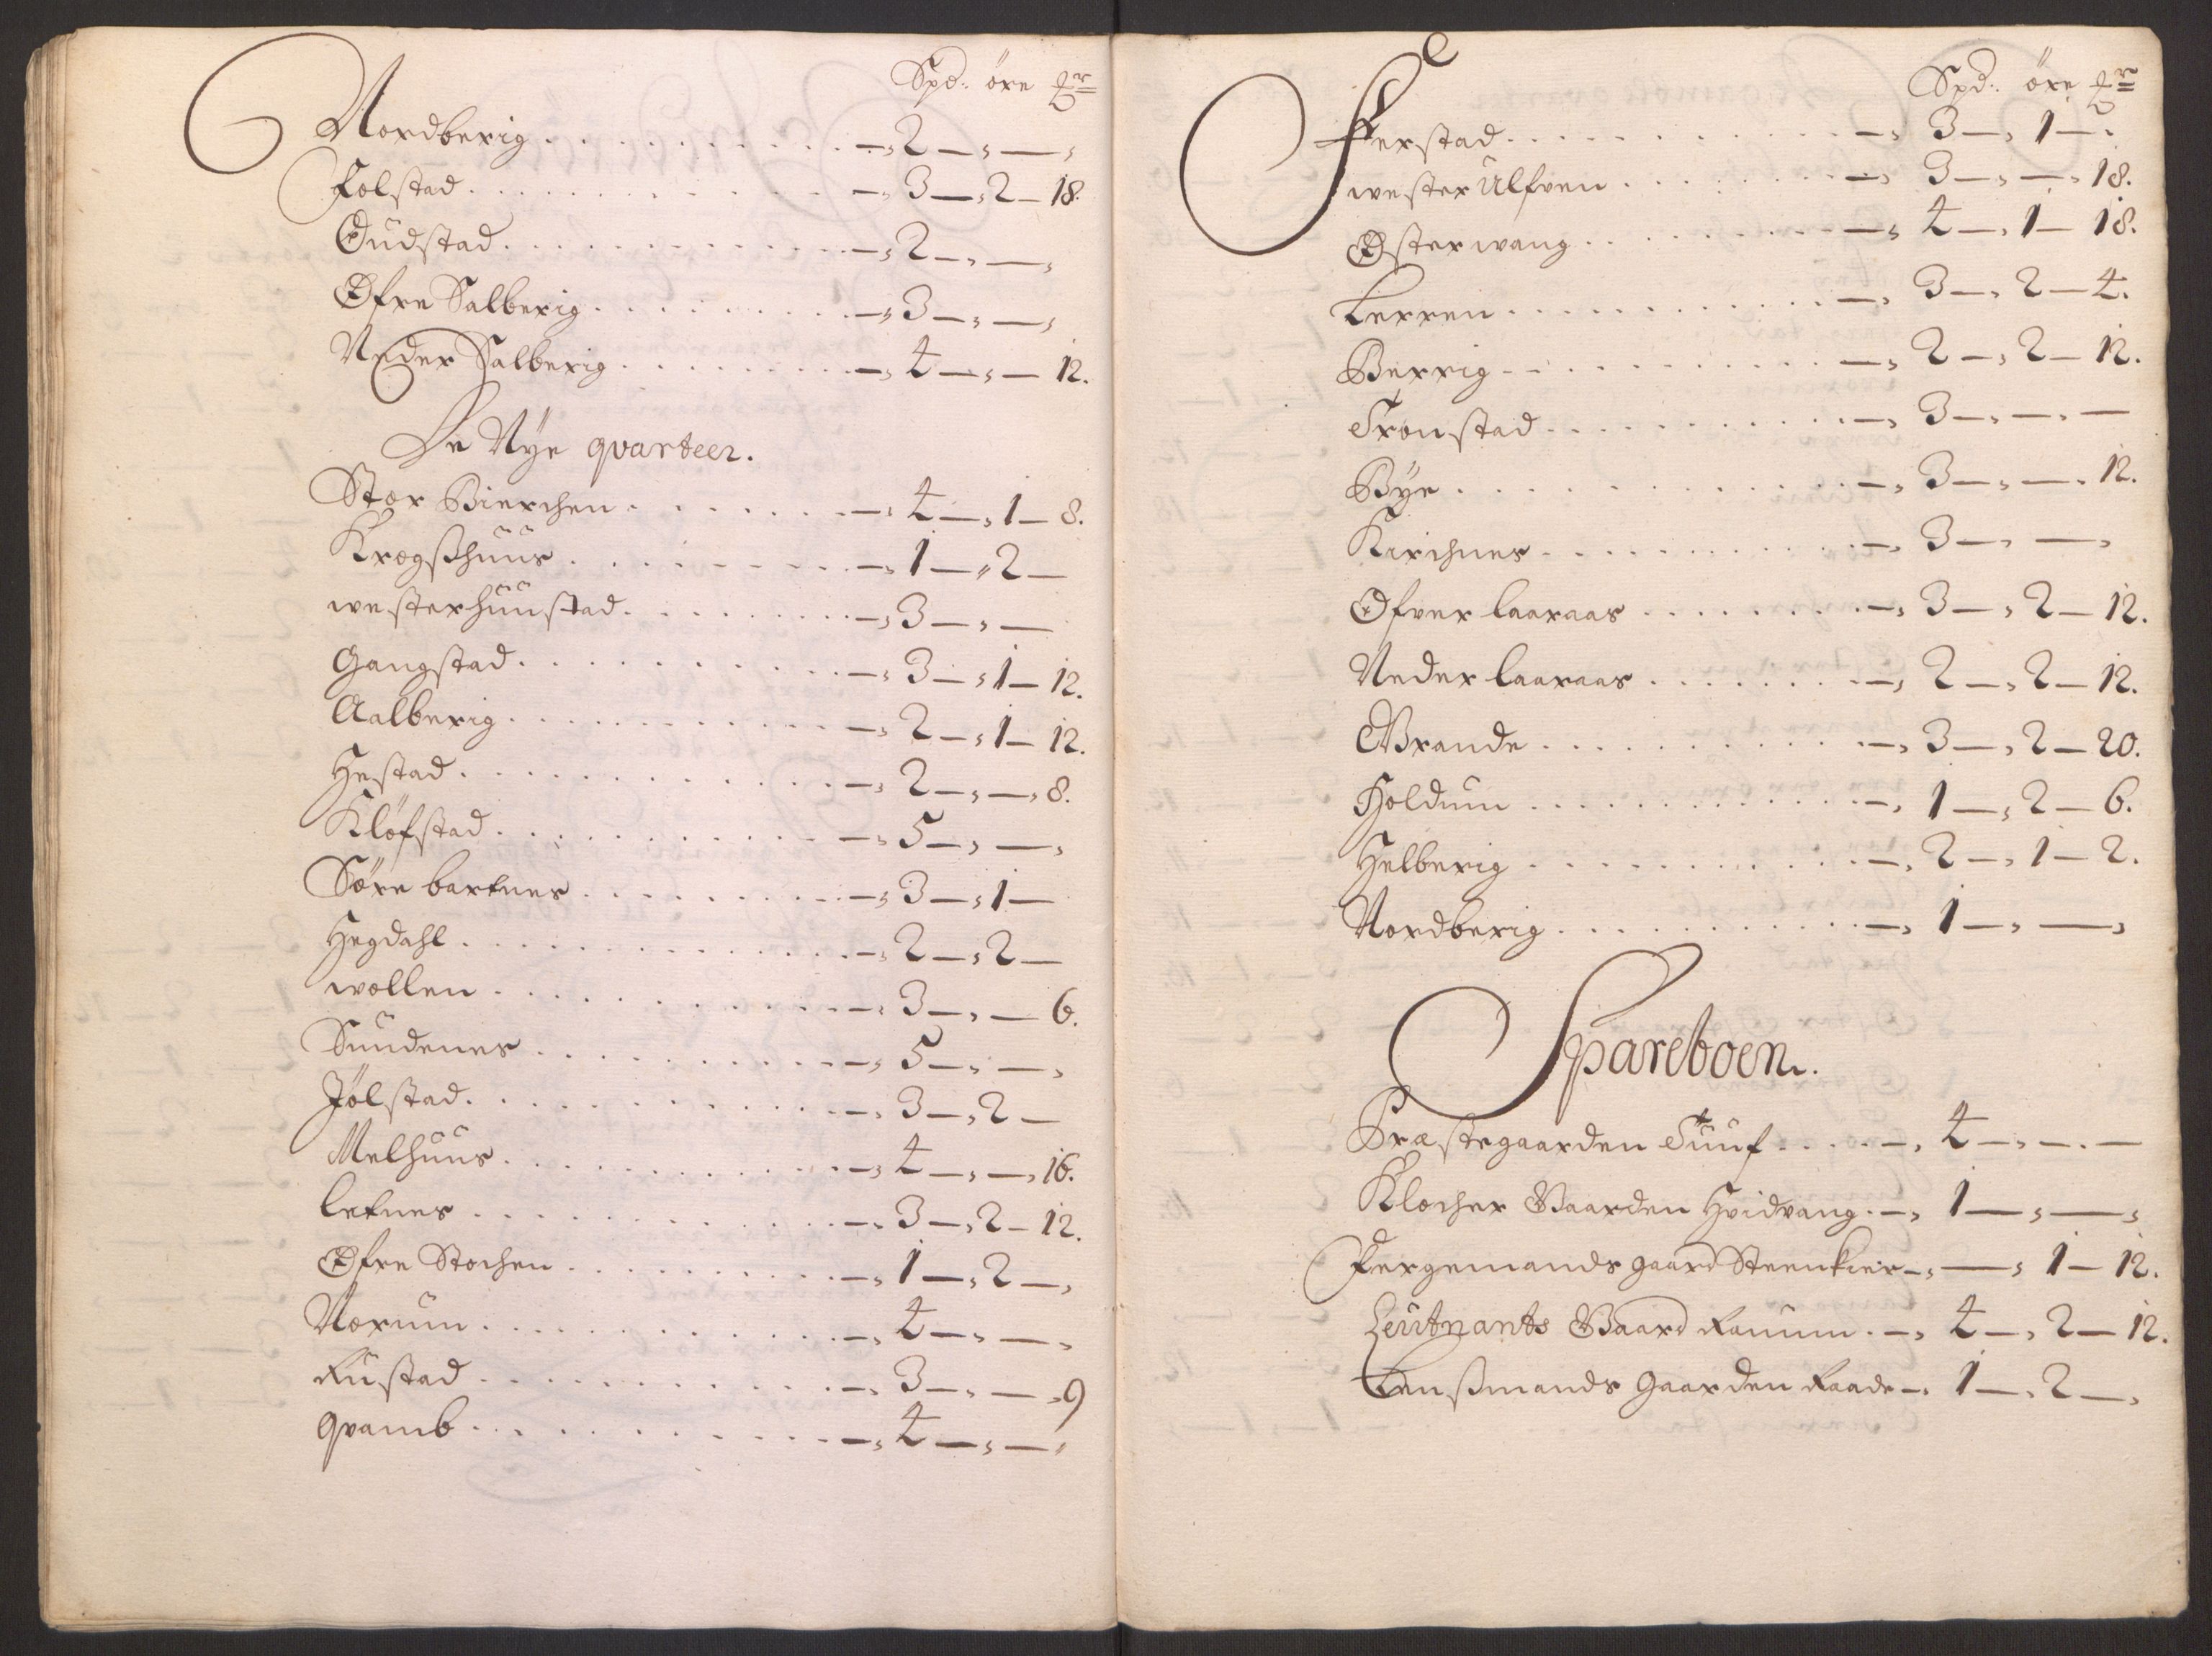 Spd: öre
Nordberig . . . . . . . . . . — 2 — —
Folstad . . . . . . . . . . — 3 — 2 — 18.
Gudstad . . . . . . . . . . — 2 — —
Øfre Salberig . . . . . . . . — 3 — —
Neder Salberig . . . . . . . — 4 — — 12.
De Nye qvarteer.
Stor Bierchen . . . . . . . — 4 — 1 — 8.
Krogsshuus . . . . . . . . — 1 — 2 —
westerhuustad . . . . . . . — 3 — —
Gangstad . . . . . . . . . — 3 — 1 — 12.
Aalberig . . . . . . . . . — 2 — 1 — 12.
Hestad . . . . . . . . . . — 2 — — 8.
Kløfstad . . . . . . . . . — 5 — —
Søre bartnes . . . . . . . . — 3 — 1 —
Hegdahl . . . . . . . . . . — 2 — 2 —
wollen . . . . . . . . . . — 3 — — 6.
Sundenes . . . . . . . . . — 5 — —
Jølstad . . . . . . . . . . — 3 — 2 —
Melhuus . . . . . . . . . . — 4 — — 16.
letnes . . . . . . . . . . — 3 — 2 — 12.
Øfre Stochen . . . . . . . . — 1 — 2 —
Norum . . . . . . . . . . — 4 — —
Rustad . . . . . . . . . . — 3 — — 9
qvamb . . . . . . . . . . — 4 — —
Spd: öre
Ferstad . . . . . . . . . . — 3 — 1 —
wester Ulfven . . . . . . . — 3 — — 18.
Østerwang . . . . . . . . — 4 — 1 — 18.
Lerren . . . . . . . . . . — 3 — 2 — 4.
Berrig . . . . . . . . . . — 2 — 2 — 12.
Tronstad . . . . . . . . . — 3 — — —
Bye . . . . . . . . . . . — 3 — — 12.
Kirchnes . . . . . . . . . — 3 — —
Øfver laaraas . . . . . . . — 3 — 2 — 12.
Neder laaraas . . . . . . . — 2 — 2 — 12.
Grande . . . . . . . . . . — 3 — 2 — 20.
Holdum . . . . . . . . . . — 1 — 2 — 6.
Helberig . . . . . . . . . — 2 — 1 — 2.
Nordberig . . . . . . . . . — 1 — —
Spareboen.
Præstegaarden Tuuf . . . . — 4 — — —
Klocher Gaarden Hvidvang . — 1 — —
Fergemands gaard Steenkier — — 1 — 12.
Leutnants Gaard Rauum . — 4 — 2 — 12.
Lenssmands Gaarden Raade — 1 — 2 —